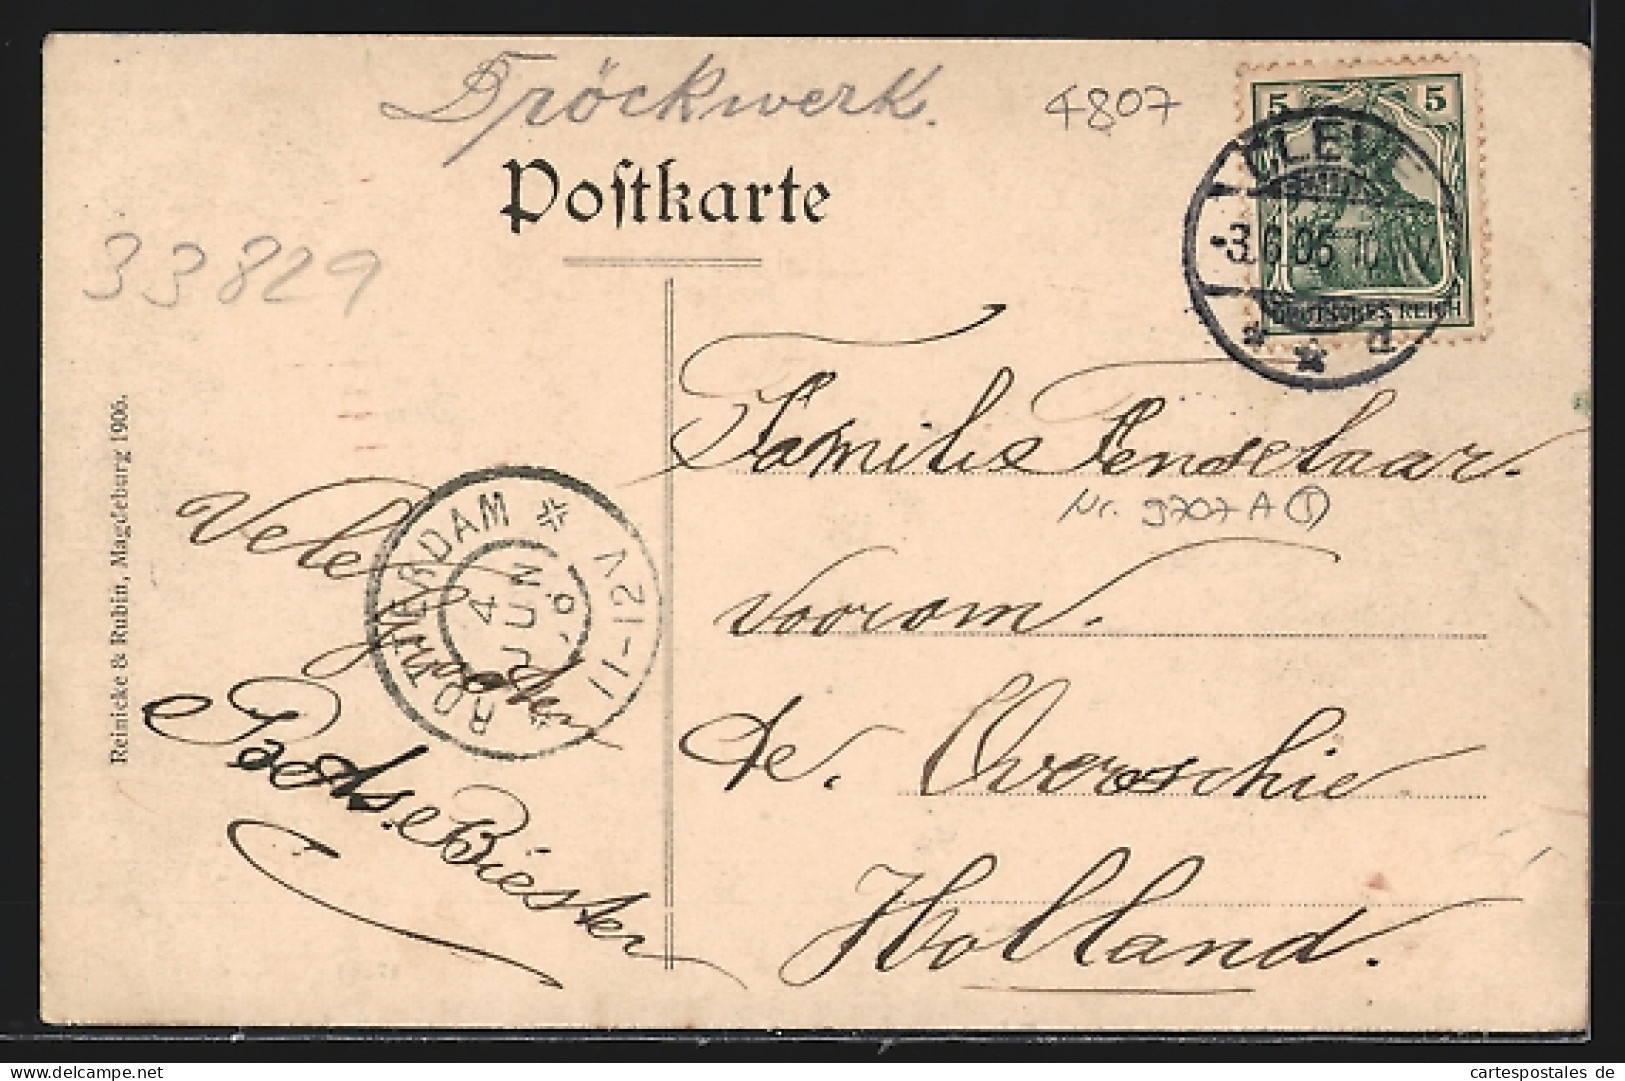 Dröckwerk.
4807
Postkarte
33829
5 5
CLEVE
3.6.06 10 V
* * d
DEUTSCHES REICH
Familie Penselaar.
Nr. 9707 A (1)
Voorom.
te. Overschie.
Holland.
Vele
ROTTERDAM
4 JUN 06
11-12V
Biester
Reinicke & Rubin, Magdeburg 1906.
cartespostales de